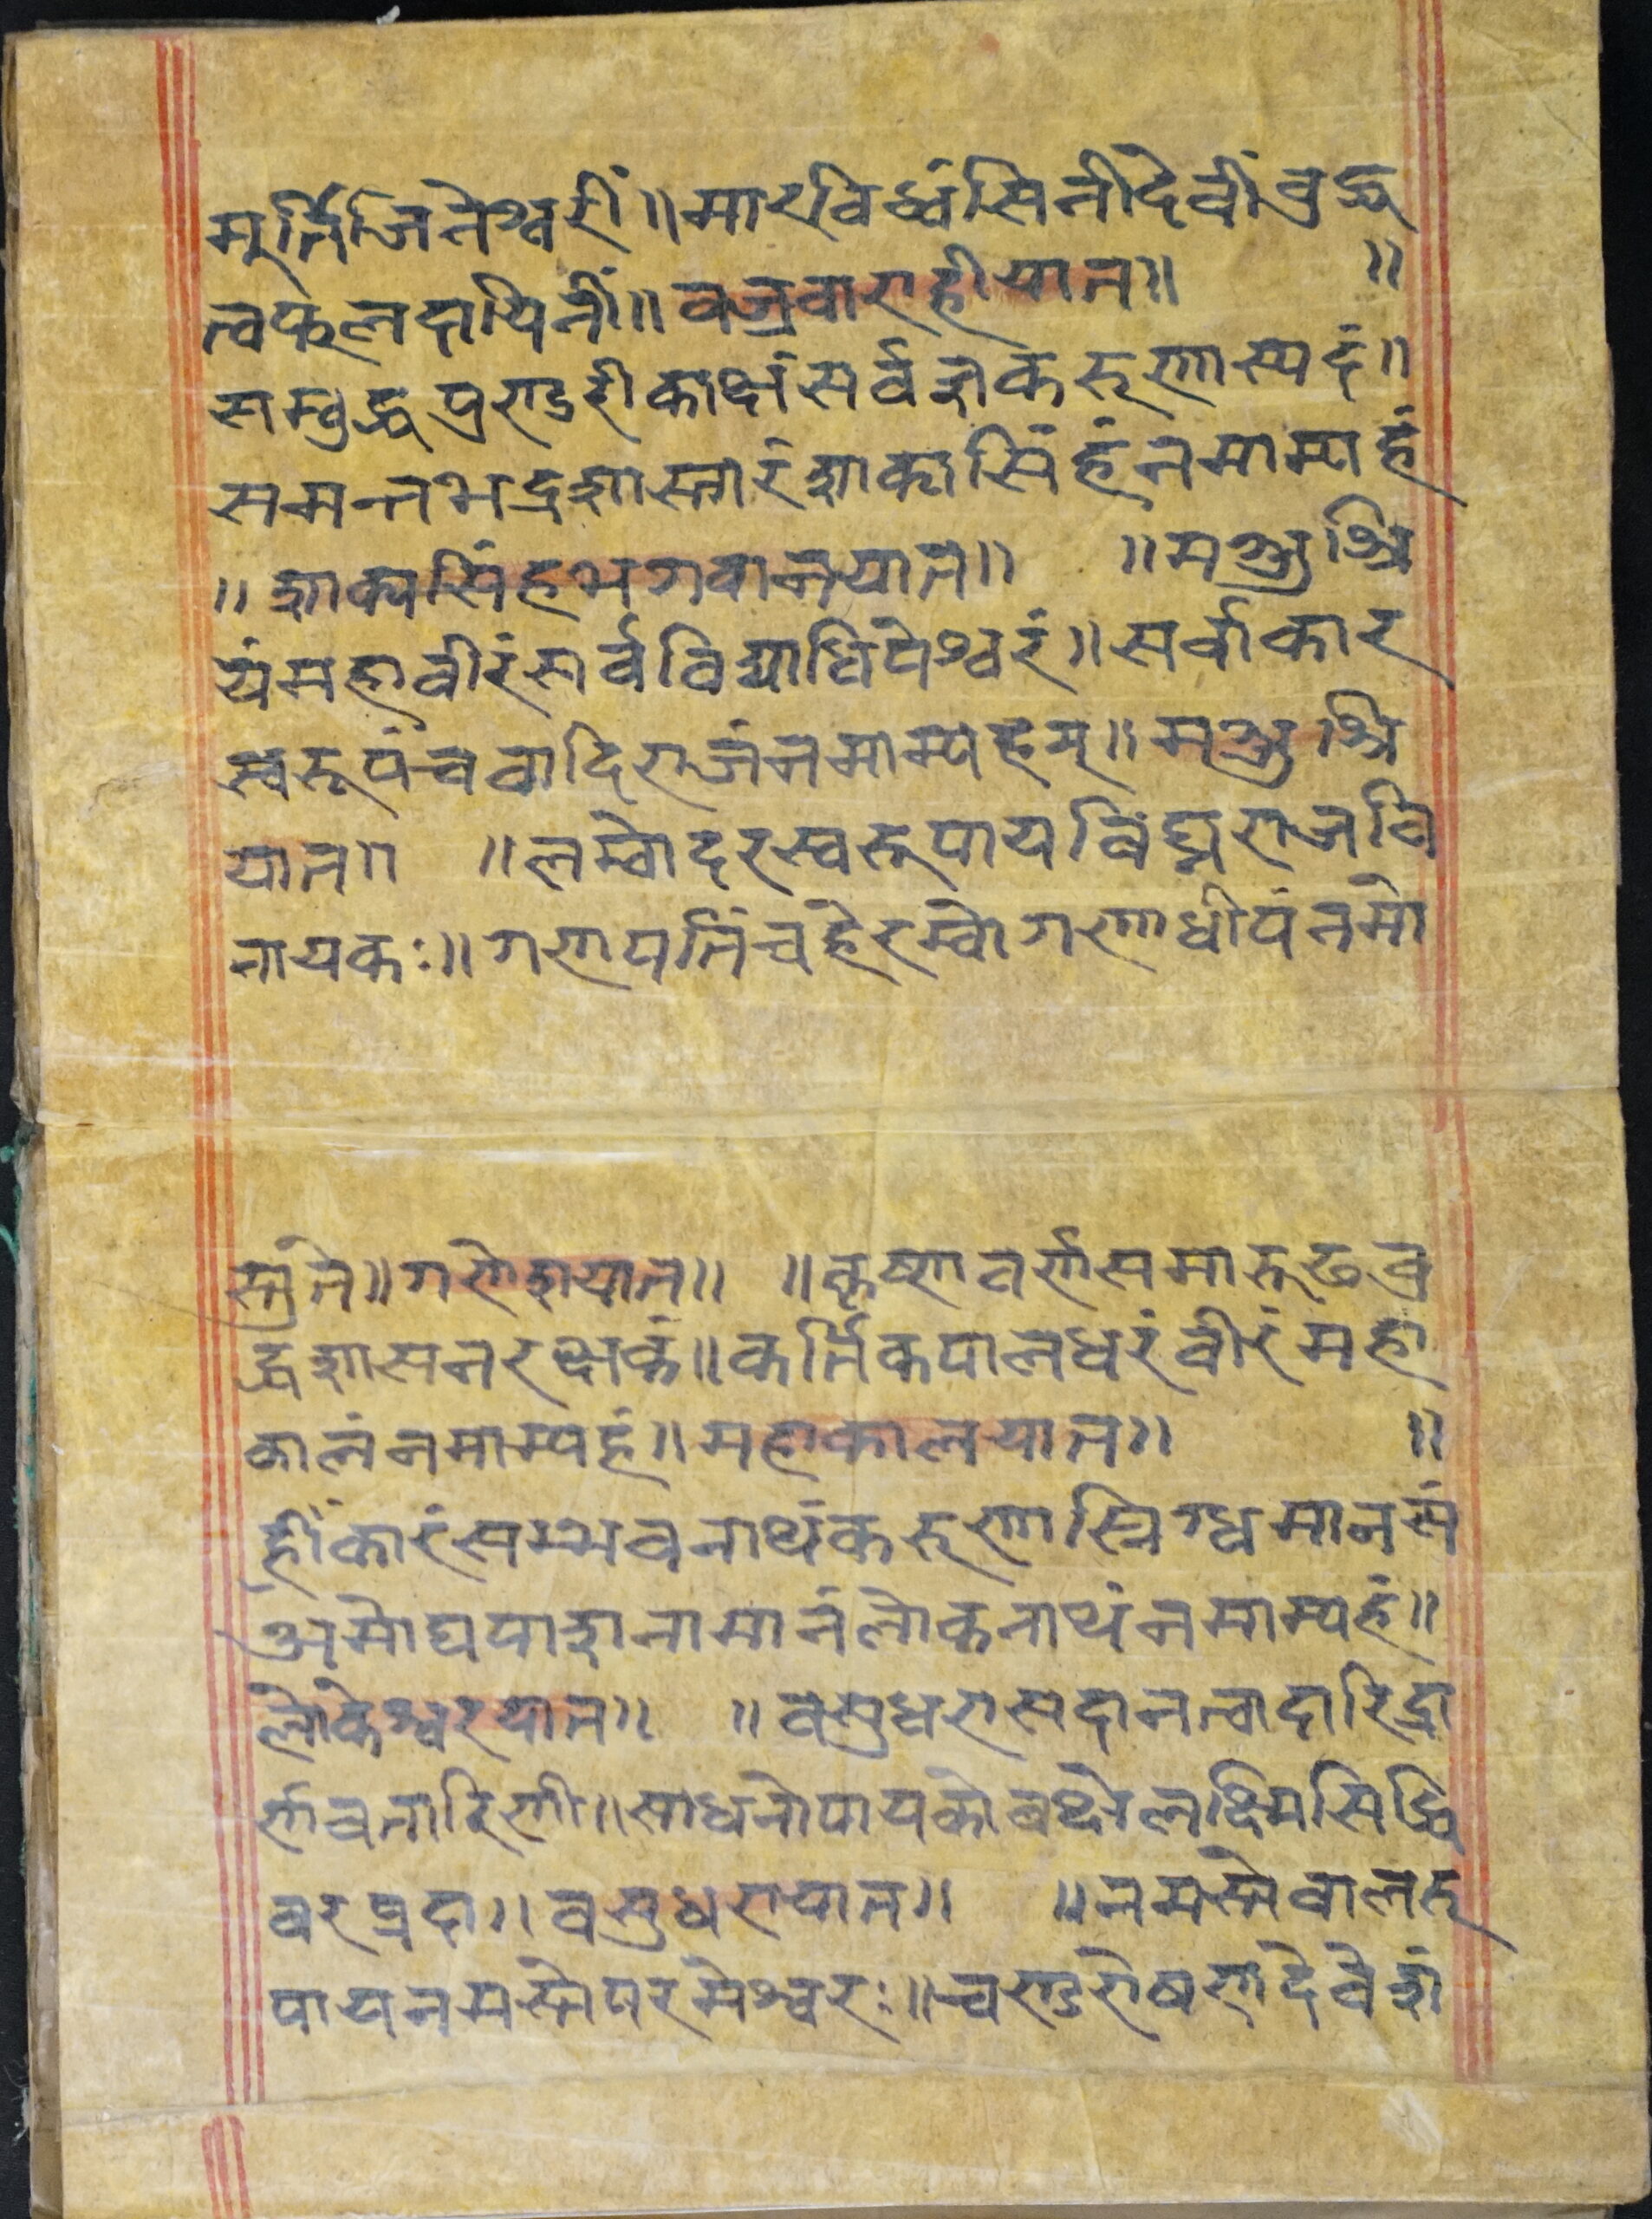 मुर्त्तिजिनेश्वरीं॥मारविध्वंसिनीदेवींवुद्ध
त्वफलदायिनीं॥वज्रवाराहीयात॥ ॥
सम्वुद्धपुण्डरीकाक्षंसर्वज्ञकरूणास्पदं॥
समन्तभद्रशास्तारंशाक्यसिंहंनमाम्यहं
॥शाक्यसिंहभगवानयात॥ ॥मञ्जुश्रि
यंमहावीरंसर्वविद्याधिपेश्वरं॥सर्वाकार
स्वरूपंचवादिराजंनमाम्यहम्॥मञ्जुश्रि
यात॥ ॥लम्वोदरस्वरूपायविघ्नराजवि
नायकः॥गणपतिंचहेरम्वोगणाधीपंनमो
स्तुते॥गणेशयात॥ ॥कृष्णवर्णसमारूढवु
द्धशासनरक्षकं॥कर्त्तिकपालधरंवीरंमहा
कालंनमाम्यहं॥महाकालयात॥ ॥
ह्रींकारंसम्भवनाथंकरूणास्निग्धमानसं
अमोघपाशनामानंलोकनाथंनमाम्यहं॥
लोकेश्वरयात॥ ॥वसुधरासदानत्वादारिद्रा
र्णवतारिणी॥साधनोपायको वक्षेलक्ष्मिसिद्धि
वरप्रदा॥वसुधरायात॥ ॥नमस्तेवालरू
पायनमस्तेपरमेश्वरः॥चण्डरोषणदेवेशं